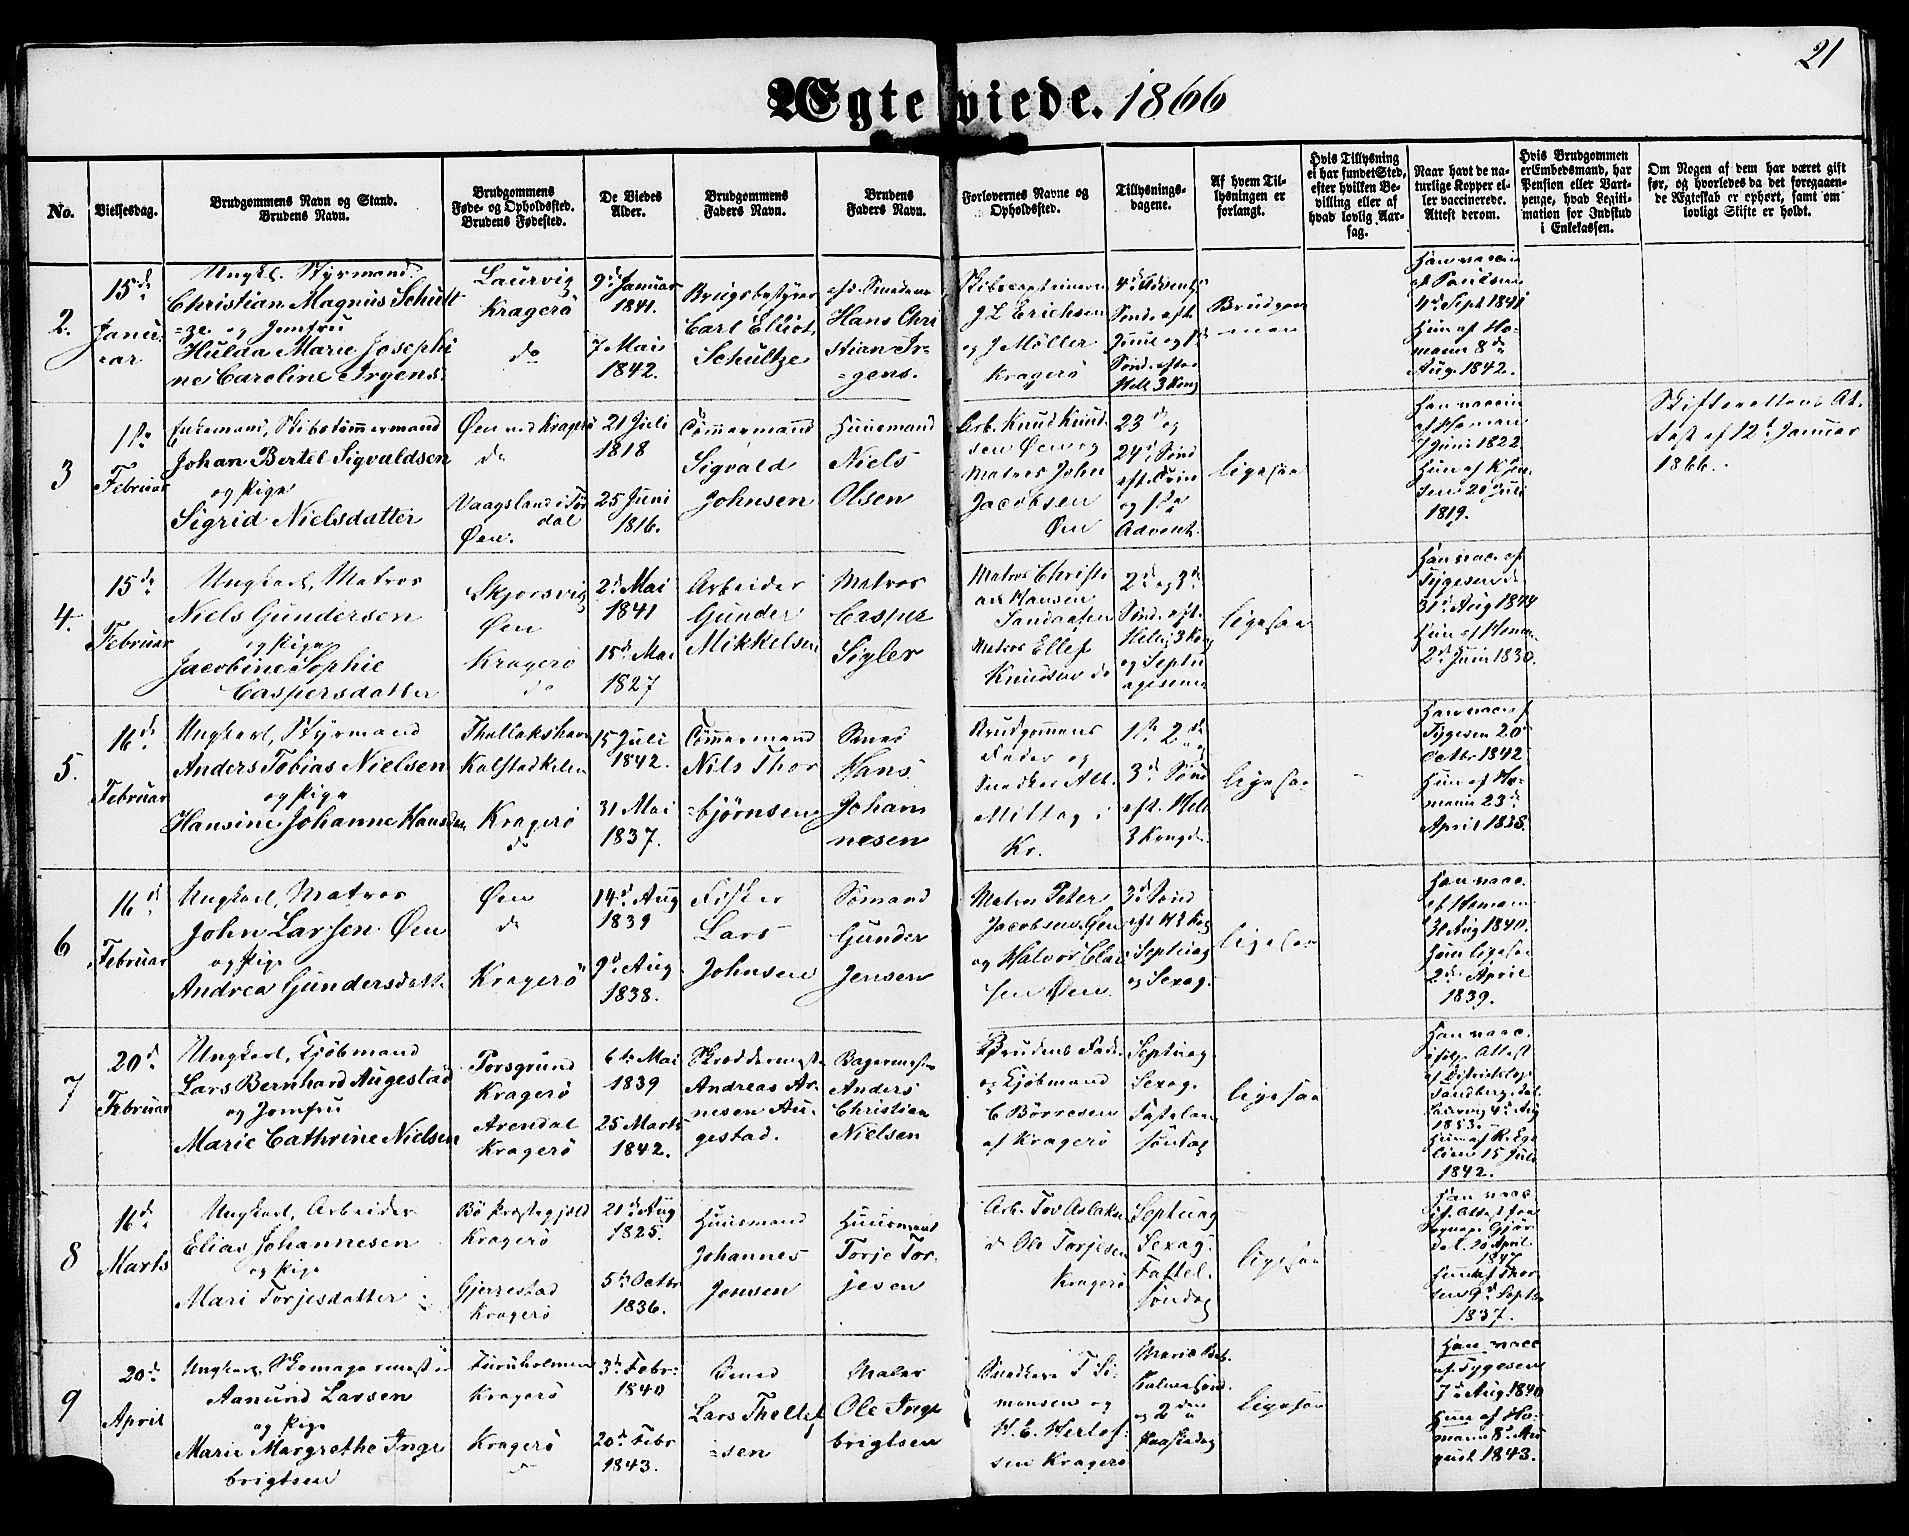 21
Ægteviede. 1866
No.
Vielsesdag.
Brudgommens Navn og Stand.
Brudens Navn.
Brudgommens
Føde- og Opholdssted.
Brudens Fødested.
De Viedes
Alder.
Brudgommens
Faders Navn.
Brudens
Faders Navn.
Forlovernes Navne og
Opholdssted.
Tillysnings-
dagene.
Af hvem Til-
lysningen er
forlangt.
Hvis Tillysning
ei har fundet Sted,
efter hvilken Be-
villing eller af
hvad lovlig Aar-
sag.
Naar havt de na-
turlige Kopper el-
ler vaccinerede.
Attest derom.
Hvis Brudgommen
er Embedsmand, har
Pension eller Vart-
penge, hvad Legiti-
mation for Indskud
i Enkekassen.
Om Nogen af dem har været gift
før, og hvorledes da det foregaaen-
de Ægteskab er ophørt, samt om
lovligt Skifte er holdt.
2.
15de
Janu-
ar
Ungkl. Styrmand
Christian Magnus Schult
=ze og Jomfru
Hulda Marie Josephi
ne Caroline Irgens.
Laurvig
Kragerö
do
9d Januar
1841.
7 Mai
1842.
Brugsbestyrer
Carl Elliot
Schultze
Hans Chri
stian Ir=
=gens.
Skibscaptainerne
J L Erichsen
og J Möller
Kragerö
4d Advents
Sönd. eft.
Juul og 1st
Sönd. efter
Hell 3 Kong
Brudgom
men
Han vaccin
af Paulsen
4d Sept 1841
Hun af Ho-
mann 8de
Aug. 1842.
3
1ste
Februar
Enkemand, Skibstömmermand
Johan Bertel Sigvaldsen
og Pige
Sigrid Nielsdatter
Øen ved Kragerö
do
Vaagsland i Tör
dal
Øen.
21 Juli
1818
25 Juni
1816.
Tömmermand
Sigvald
Johnsen
Huusmand
Niels
Olsen
Arb. Knud Knud
sen Øen og
Matros John
Jacobsen
Øen
23de og
24d Sönd
eft. Trin
og 1ste
Advent.
ligesaa
Han vaccin
af Homan
Juni 1822
Hun af
20 Juli
1819.
Skifterettens At-
test af 12te Januar
1866.
4.
15de
Februar
Ungkarl, Matros
Niels Gundersen
og Pige
Jacobine Sophie
Caspersdatter
Skjorsvig
Øen
Kragerö
do
2d Mai
1841
15d Mai
1827
Arbeider
Gunder
Mikkelsen
Matros
Casper
Sigler
Matros Christi
an Hansen
Matros Ellef
Knudsen do
2d og 3d
Sönd. eft.
Hellig 3 Kong
og Septu
agesima
ligesaa
Han vacc. af
Tygesen d.
31d Aug 1844
Hun af Homan
2d Juni 1830.
5.
16d
Februar
Ungkarl, Styrmand
Anders Tobias Nielsen
og Pige
Hansine Johanne Hansen
Thollakshavn
Kalstadkilen
Kragerö
do
15 Juli
1842.
31 Mai
1837.
Tömmermand
Nils Thor
=björnsen
Hans
Johan
nesen
Brudgommens
Fader og
Snedker Alb.
Mittag i
Kr.
1ste 2den og
3d Sönd
eft. Hell
3 Kongd.
ligesaa
Han vacc. af
Tygesen 20
Octbr 1842
Hun af Ho-
mann 23d
April 1838.
6
16d
Februar
Ungkarl, Matros
John Larsen Øen
og Pige
Andrea Gundersdatt.
Øen
do
Kragerö
14d Aug
1839
9d Aug
1838.
Fisker
Lars
Johnsen
Sömand
Gunder
Jensen
Matros Peter
Jacobsen Øen
og Halvor Clau
sen Øen.
3d Sönd
eft H 3 Kong
Septuag
og Sexag.
ligesaa
Han vacc.
af Homann
31 Aug 1840.
Hun ligesaa
2d April
1839.
7
20d
Februar
Ungkarl, Kjöbmand
Lars Bernhard Augestad
og Jomfru
Marie Cathrine Nielsen
Porsgrund
Kragerö
Arendal
Kragerö
6te Mai
1839
25 Marts
1842.
Skræddermester
Andreas Ar-
nesen Au-
gestad.
Bagermester
Anders
Christian
Nielsen
Brudens Fader
og Kjöbmand
C Börresen
af Kragerö
Septuag
Sexag.
Fastelavn
söndag
ligesaa
Han vacc.
ifølge Attest
af Districtslæge
Sandberg, dat.
Laurvig 4d Aug
1853.
Hun af
15 Juli
1842.
8
16d
Marts
Ungkarl, Arbeider
Elias Johannesen
og Pige
Mari Torjesdatter
Bö Præstegjeld
Kragerö
Gjerrestad
Kragerö
21d Aug
1825.
5te Octbr
1836.
Huusmand
Johannes
Jonsen
Huusmand
Torje Tor-
jesen
Arb. Tov Aslaks
d Ole Torjesen
Kragerö
Septuag
Sexag.
Fastel.
söndag
ligesaa
Han vacc
if. Attest fra
20 April
1847
Hun af Thor
sen 9d Septbr
1837.
9
20de
April
Ungkarl, Skomagermester
Aanund Larsen
og Pige
Marie Margrethe Inge
brigtsen
Furuholmen
Kragerö
Kragerö
do
3d Febr.
1840
20d Febr
1843.
Smed
Lars Thellef
=sen
Maler
Ole Inge
brigtsen
Snedkere T Si-
monsen og
H. C. Herlof-
sen Kragerö
Mariæ Beb.
Palmesönd.
og 2den
Paaskedag
ligesaa
Han vacc
af Tygesen
7d Aug. 1840
Hun af Ho-
mann 8d Au
gust 1843.